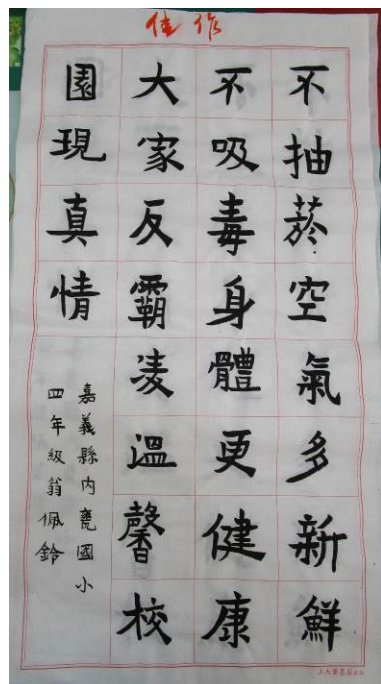 佳作
不抽菸空氣多新鮮
不吸毒身體更健康
大家反霸凌溫馨校
園現真情
嘉義縣內甕國小
四年級翁佩鈴